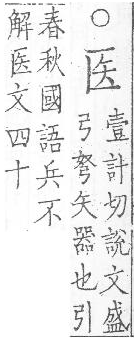 ○医壹計切說文盛
弓弩矢器也引
春秋國語兵不
解医文四十